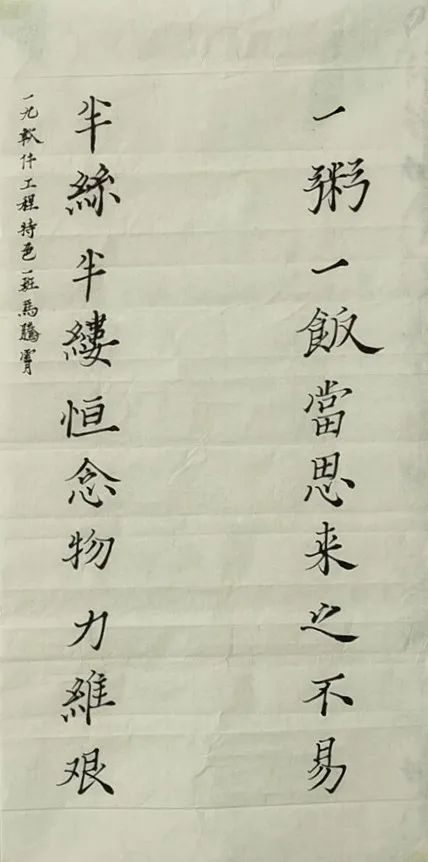 一粥一飯當思来之不易
半絲半縷恒念物力維艰
一九软件工程特色一班馬騰霄